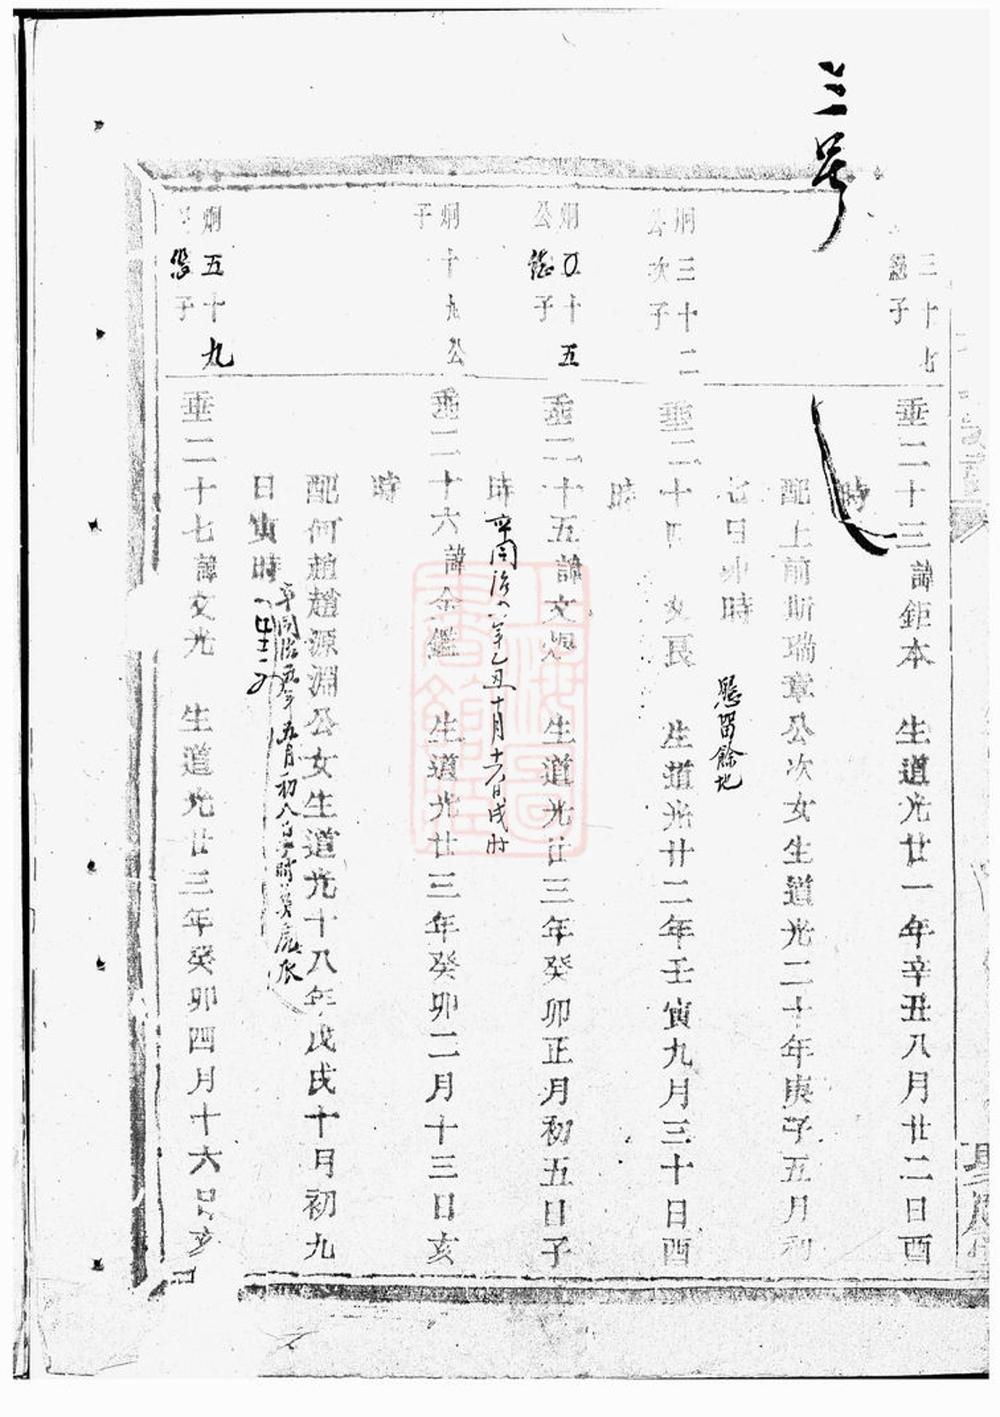 三号
三十七
子
垂二十三諱鉅本　生道光廿一年辛丑八月廿二日酉
時
配上前斯瑞章公次女生道光二十年庚子五月初
七日 時
懸留餘地
炯三十二
公次子
垂二十四 文良　生道光廿二年壬寅九月三十日酉
時
炯五十五
公 子
垂二十五諱文 　生道光廿三年癸卯正月初五日子
時
卒同治 年乙丑十月十六日戌时
炯十九公
子
垂二十六諱金鑑　生道光廿三年癸卯二月十三日亥
時
配何趙趙源淵公女生道光十八年戊戌十月初九
日寅時
卒同治 年五月初八日
一生二
炯五十九
子
垂二十七諱文光　生道光廿三年癸卯四月十六日亥
上海圖書館藏